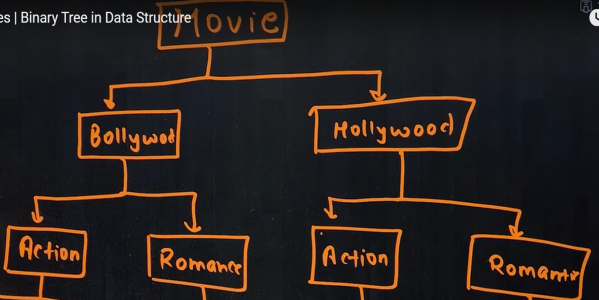 es | Binary Tree in Data Structure
Movie
Bollywood
Hollywood
Action
Romance
Action
Romantic